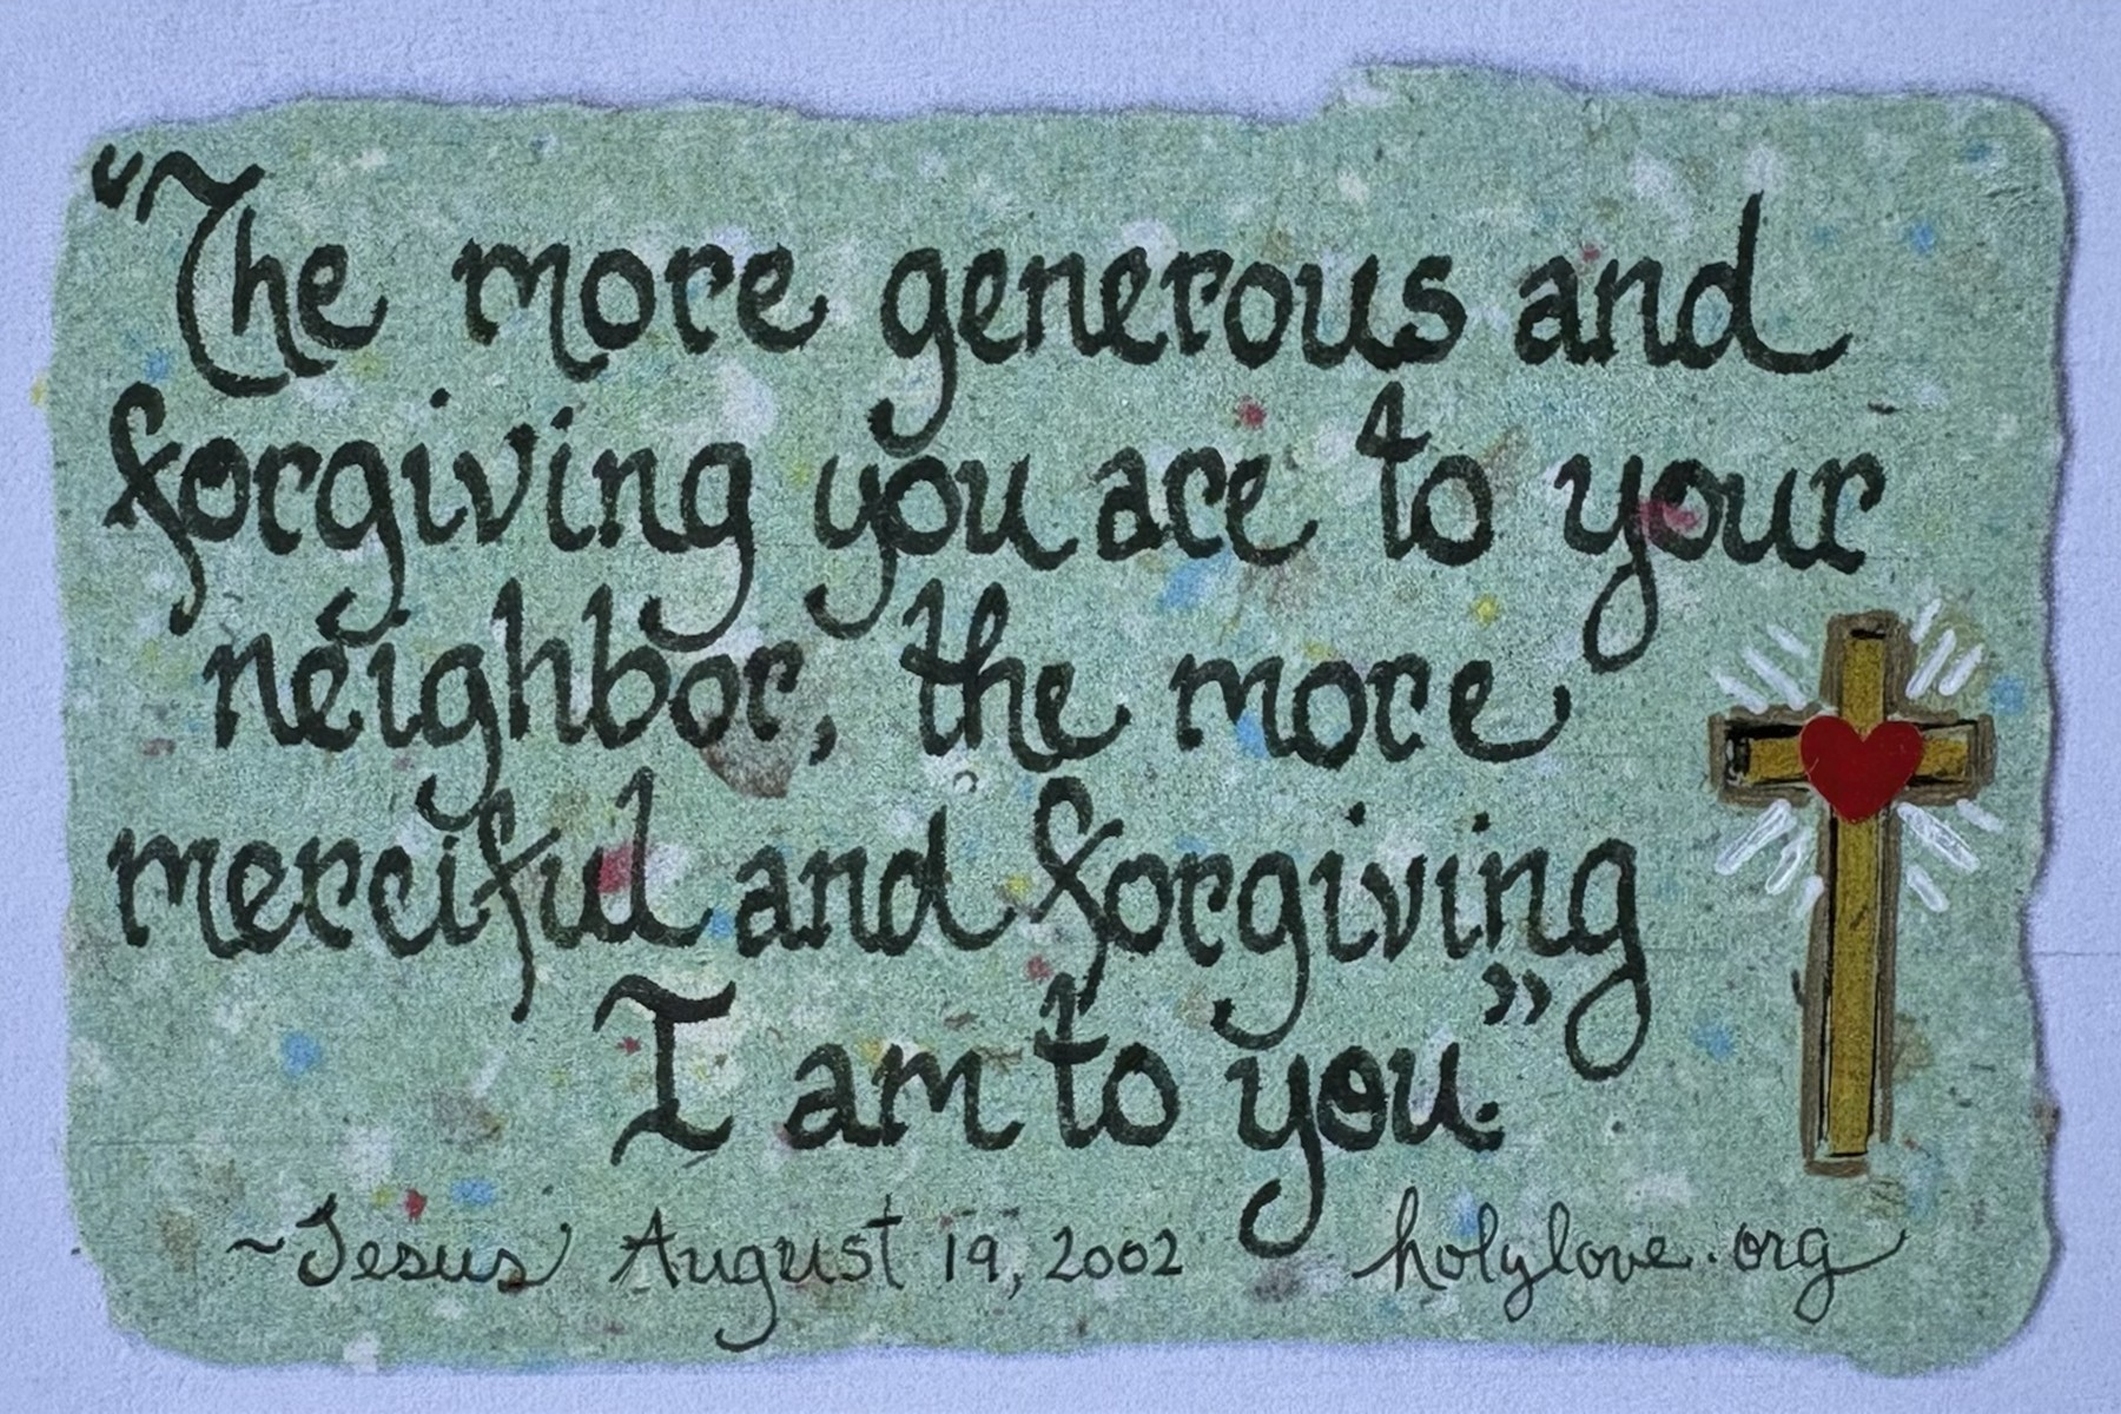 "The more generous and
forgiving you are to your
neighbor, the more
merciful and forgiving
I am to you."
~Jesus August 19, 2002 holylove.org